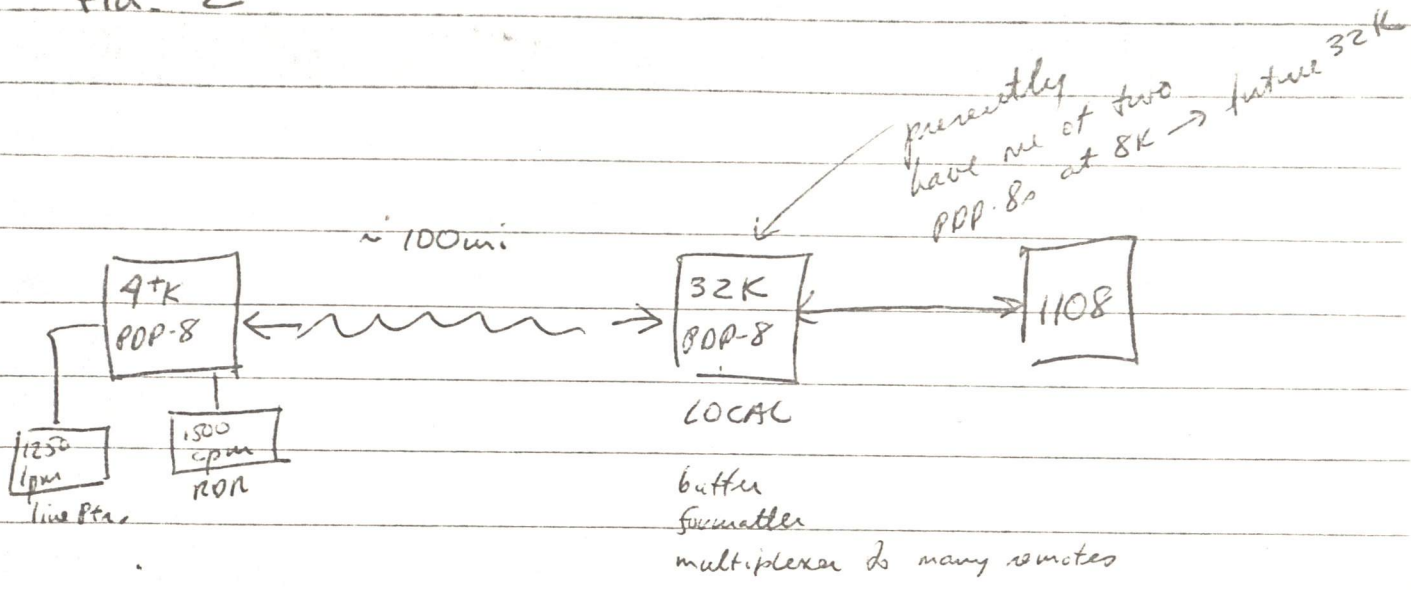 FIG. 2
presently
have one of two
PDP-8s at 8K → future 32K
~ 100mi
4+K
PDP-8
32K
PDP-8
1108
LOCAL
1250
lpm
line Ptr.
1500
cpm
RDR
buffer
formatter
multiplexer to many remotes